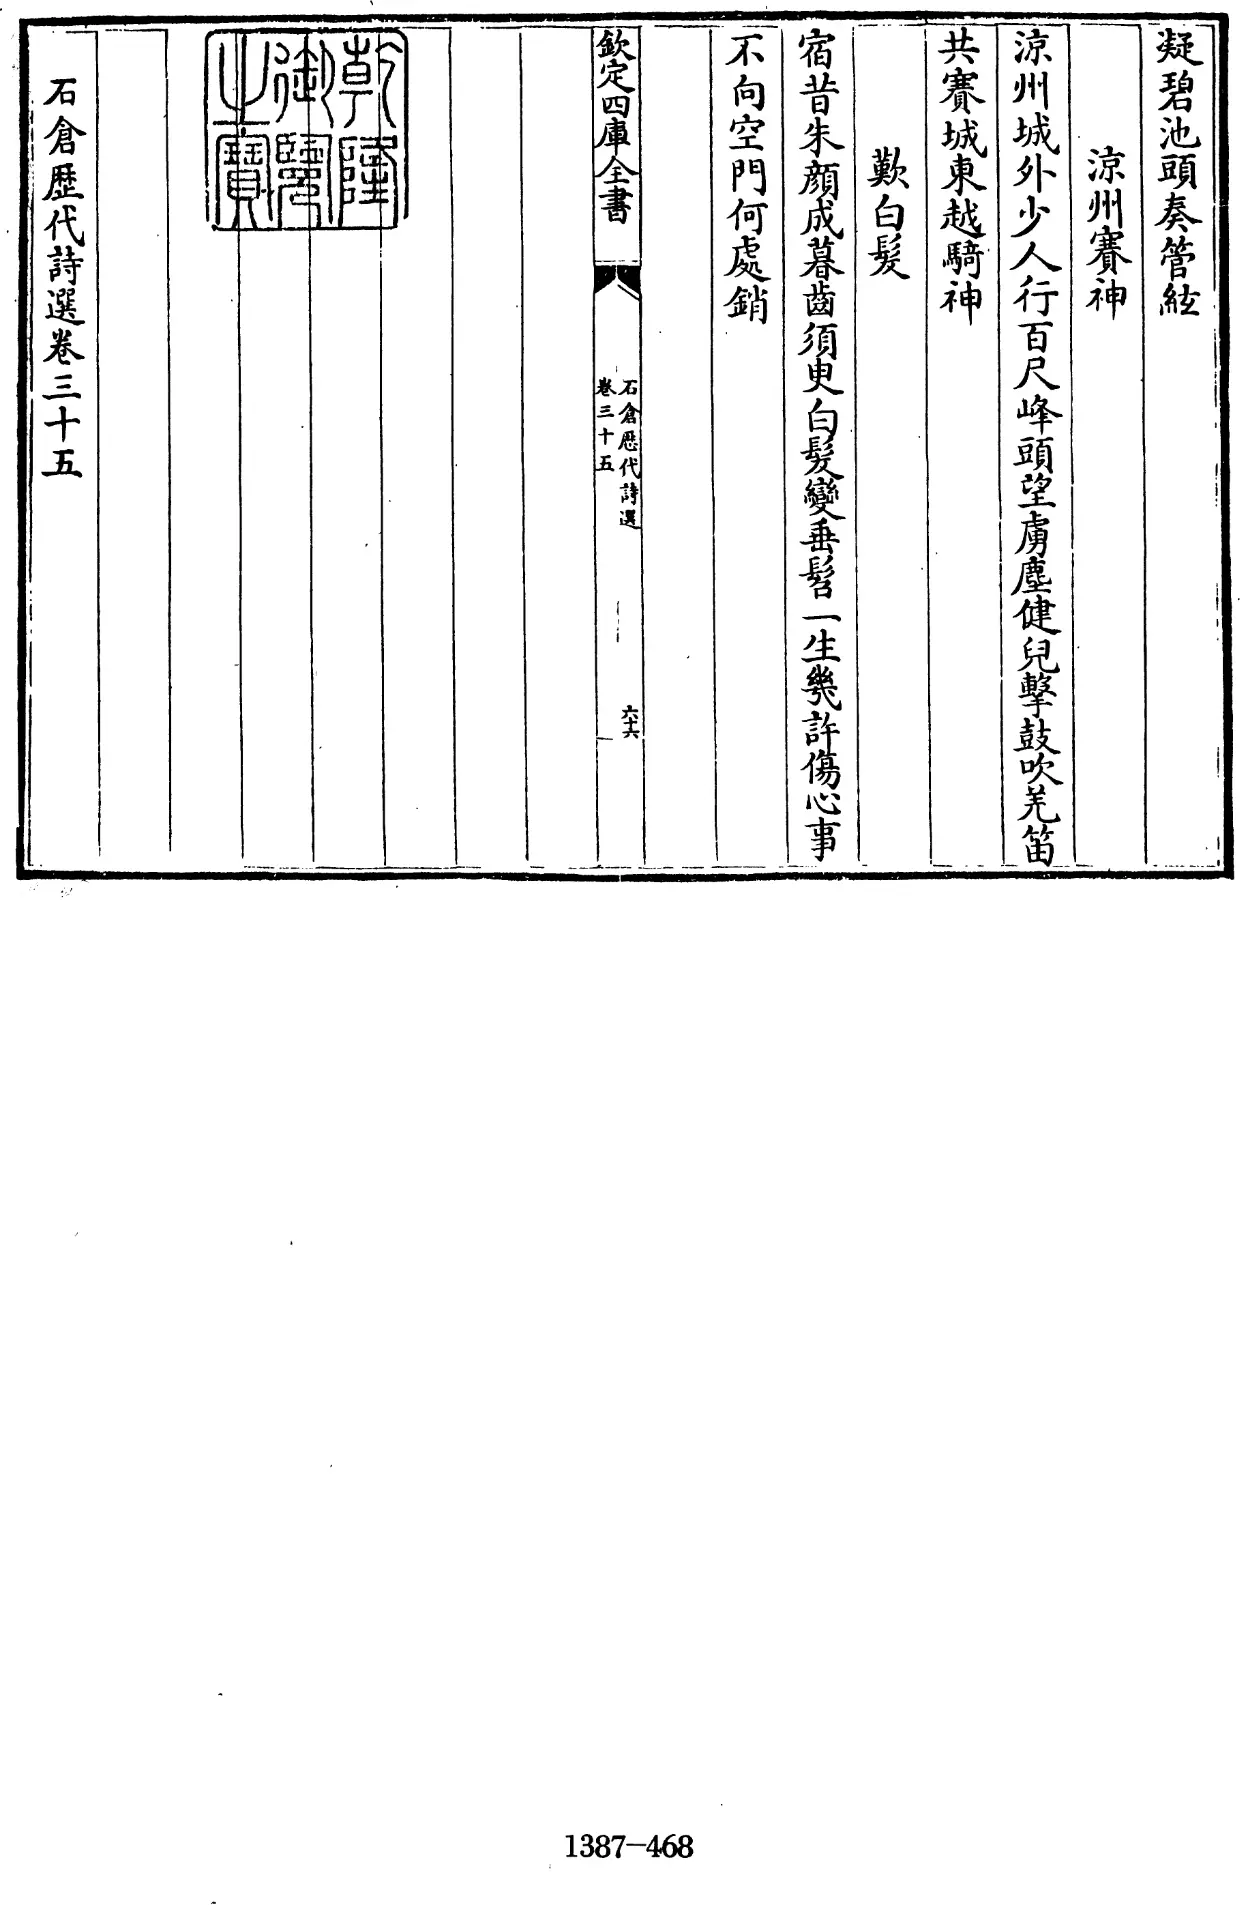 凝碧池頭奏管絃
涼州賽神
涼州城外少人行百尺峰頭望虜塵健兒擊鼓吹羌笛
共賽城東越騎神
歎白髮
宿昔朱顔成暮齒須臾白髮變垂髫一生幾許傷心事
不向空門何處銷
欽定四庫全書
石倉歷代詩選
卷三十五
六十六
乾隆
御覽
之寶
石倉歷代詩選卷三十五
1387-468